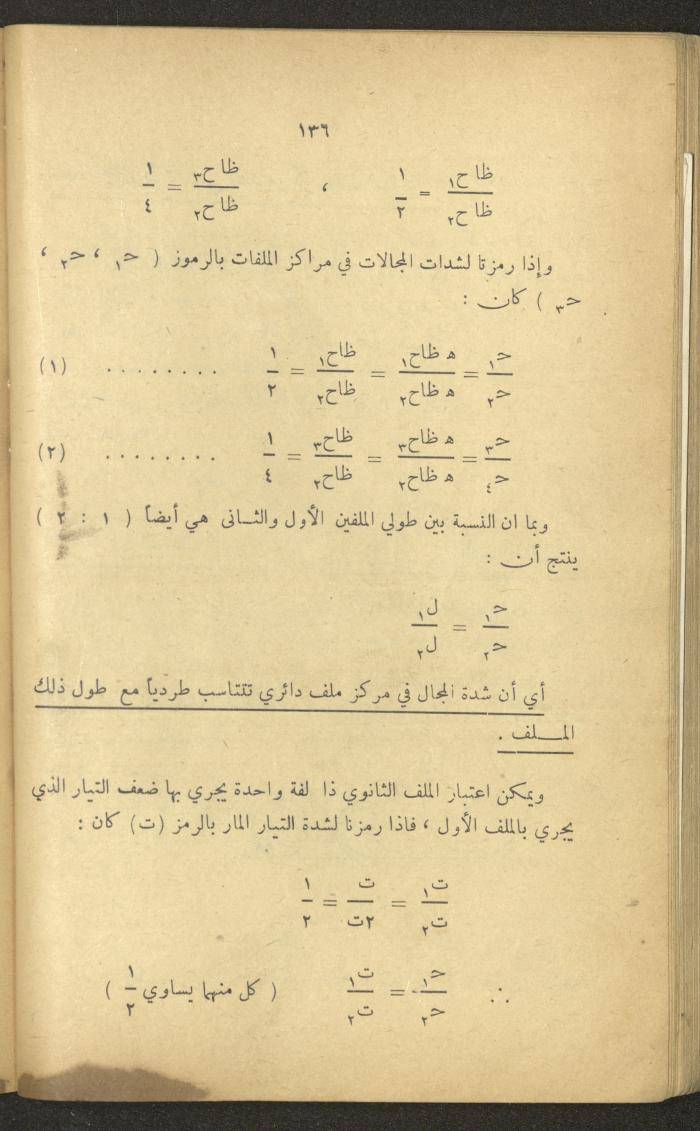 ١٣٦
ظا ح١ / ظا ح٢ = ١ / ٢ ، ظا ح٣ / ظا ح٢ = ١ / ٤
وإذا رمزنا لشدات المجالات في مراكز الملفات بالرموز ( حـ١ ، حـ٢ ،
حـ٣ ) كان :
حـ١ / حـ٢ = ه ظاح١ / ه ظاح٢ = ظاح١ / ظاح٢ = ١ / ٢ ........ (١)
حـ٣ / حـ٤ = ه ظاح٣ / ه ظاح٢ = ظاح٣ / ظاح٢ = ١ / ٤ ........ (٢)
وبما ان النسبة بين طولي الملفين الأول والثـانى هي أيضاً ( ١ : ٢ )
ينتج أن :
حـ١ / حـ٢ = ل١ / ل٢
أي أن شدة المجال في مركز ملف دائري تتناسب طردياً مع طول ذلك
المـلف .
ويمكن اعتبار الملف الثانوي ذا لفة واحدة يجري بها ضعف التيار الذي
يجري بالملف الأول ، فاذا رمزنا لشدة التيار المار بالرمز (ت) كان :
ت١ / ت٢ = ت / ٢ت = ١ / ٢
∴ حـ١ / حـ٢ = ت١ / ت٢ ( كل منهما يساوي ١ / ٢ )